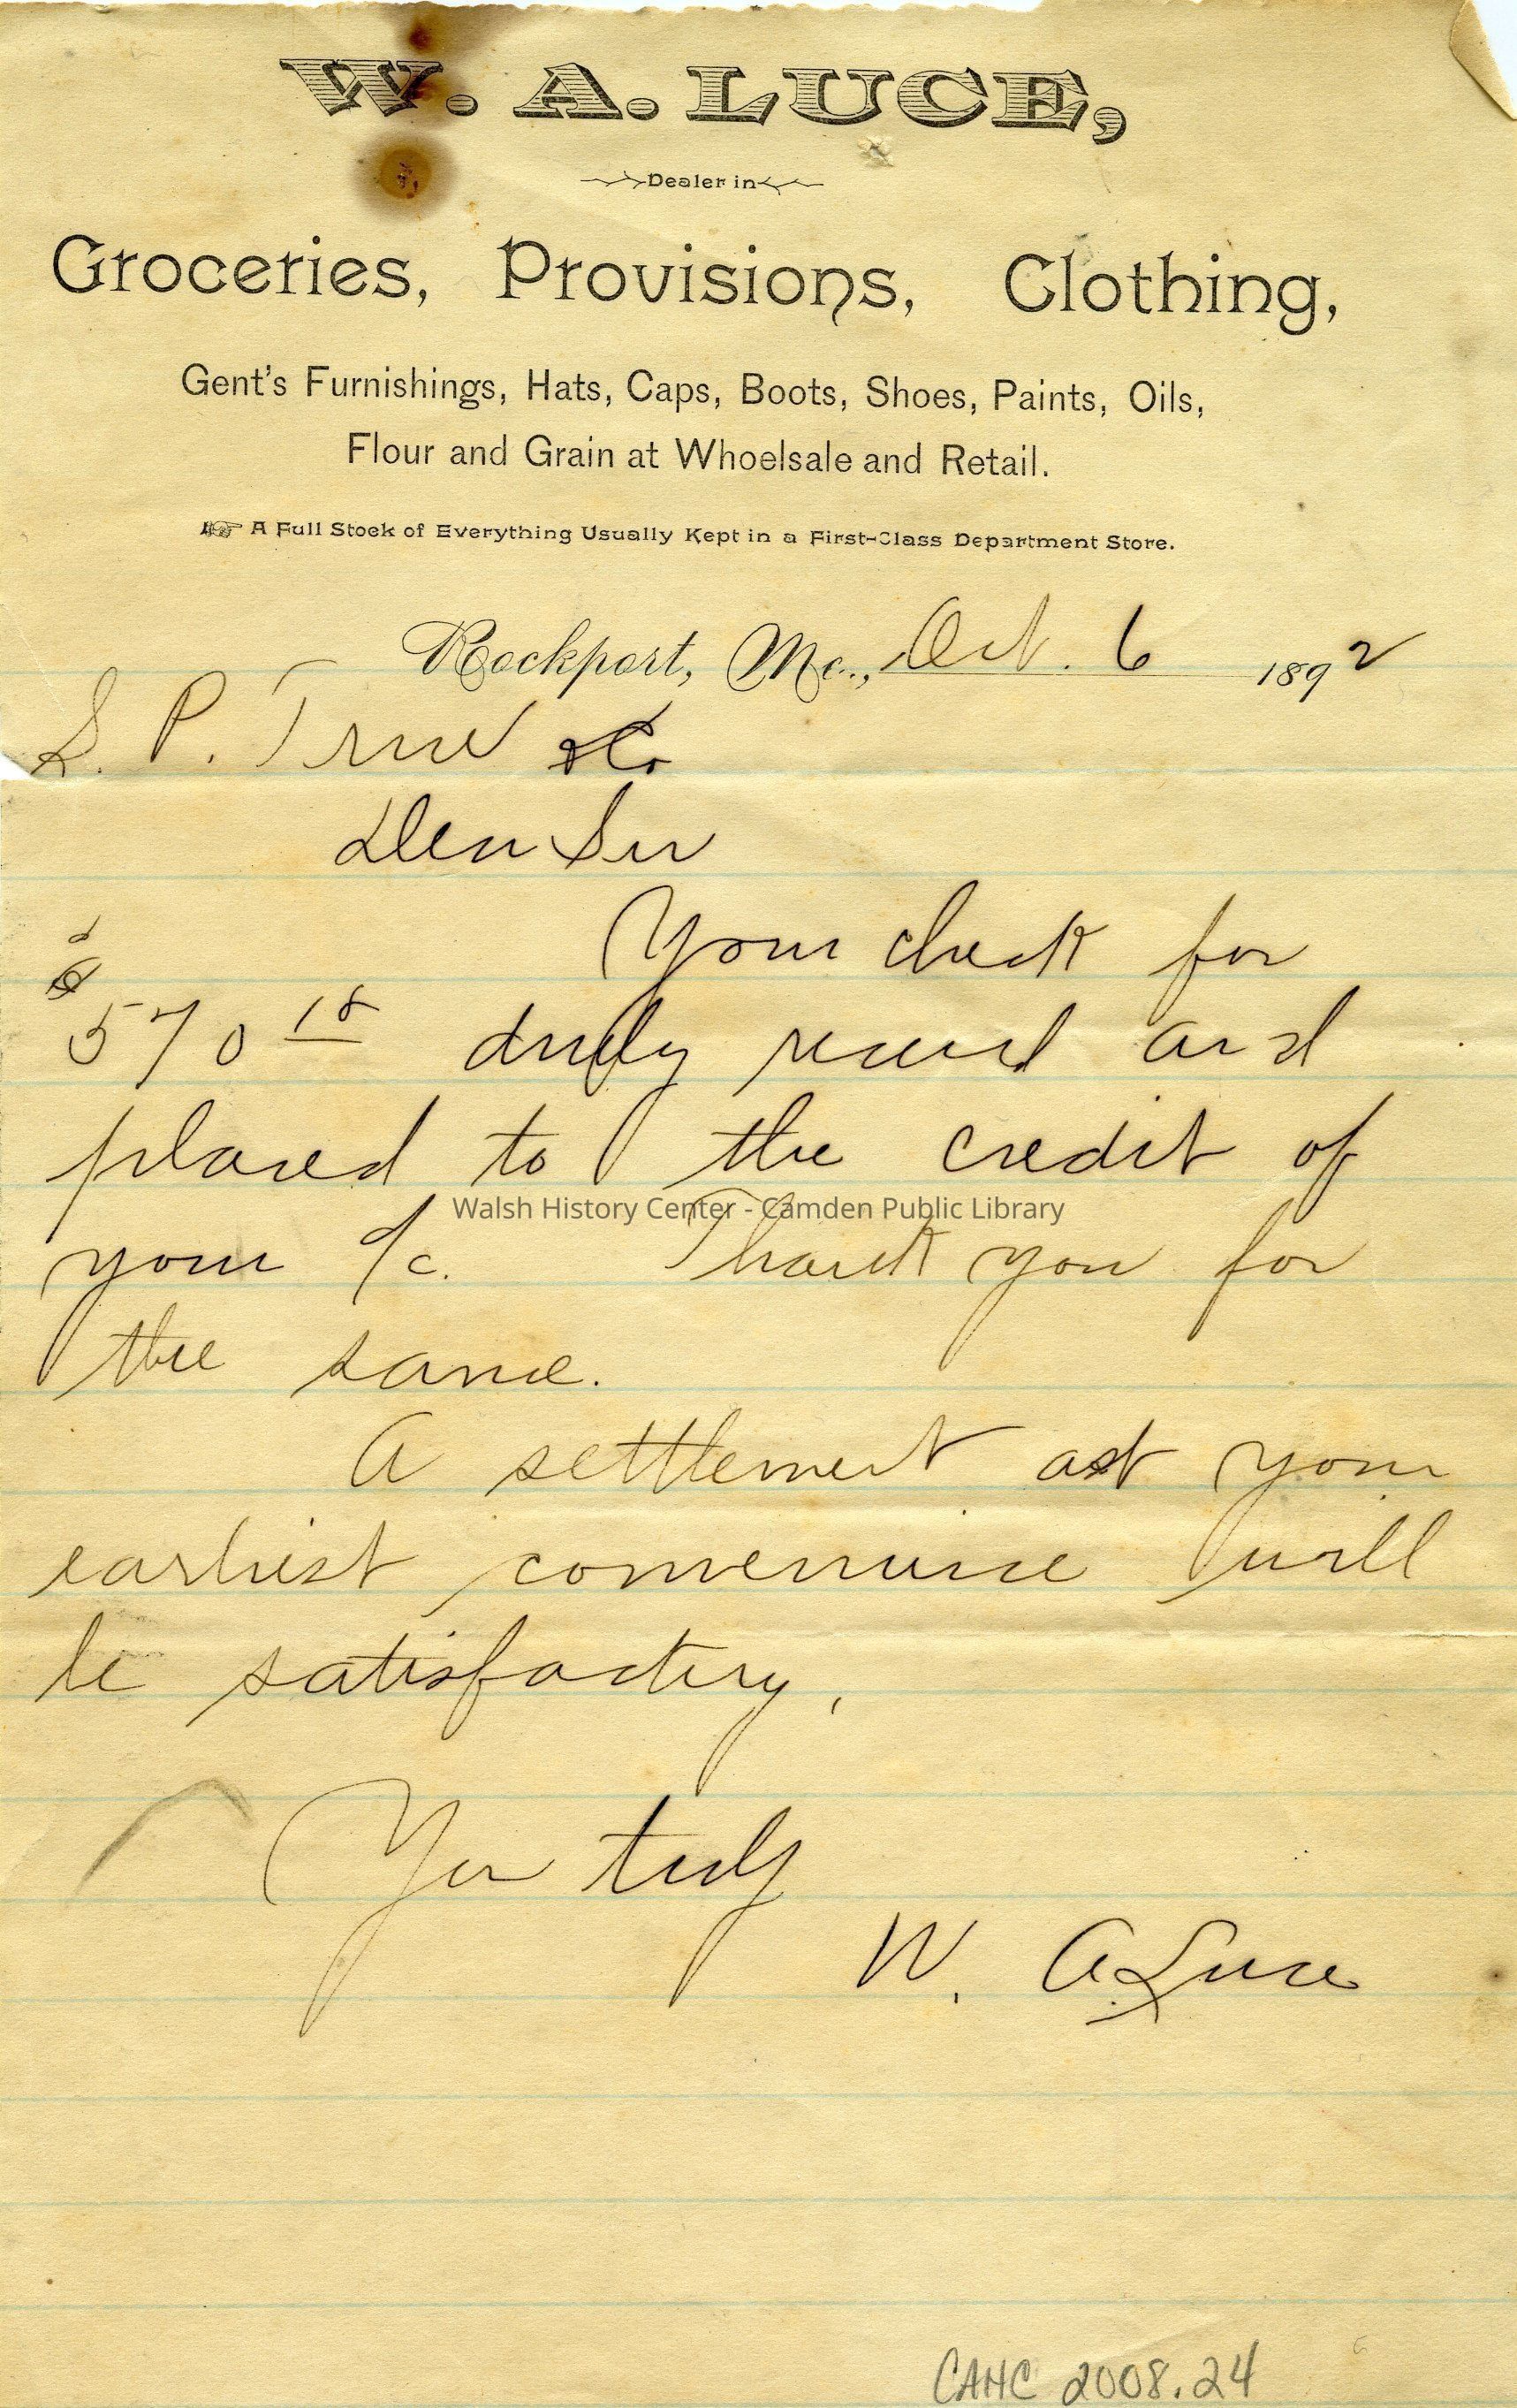 W. A. LUCE,
Dealer in
Groceries, Provisions, Clothing,
Gent's Furnishings, Hats, Caps, Boots, Shoes, Paints, Oils,
Flour and Grain at Whoelsale and Retail.
A Full Stock of Everything Usually Kept in a First-Class Department Store.
Rockport, Me., Oct. 6 1892
S. P. True & Co
Dear Sir
Your check for
$570 18 duly received and
placed to the credit of
Walsh History Center - Camden Public Library
your a/c. Thank you for
the same.
A settlement at your
earliest convenience will
be satisfactory.
Yor truly
W. A. Luce
CAHC 2008.24